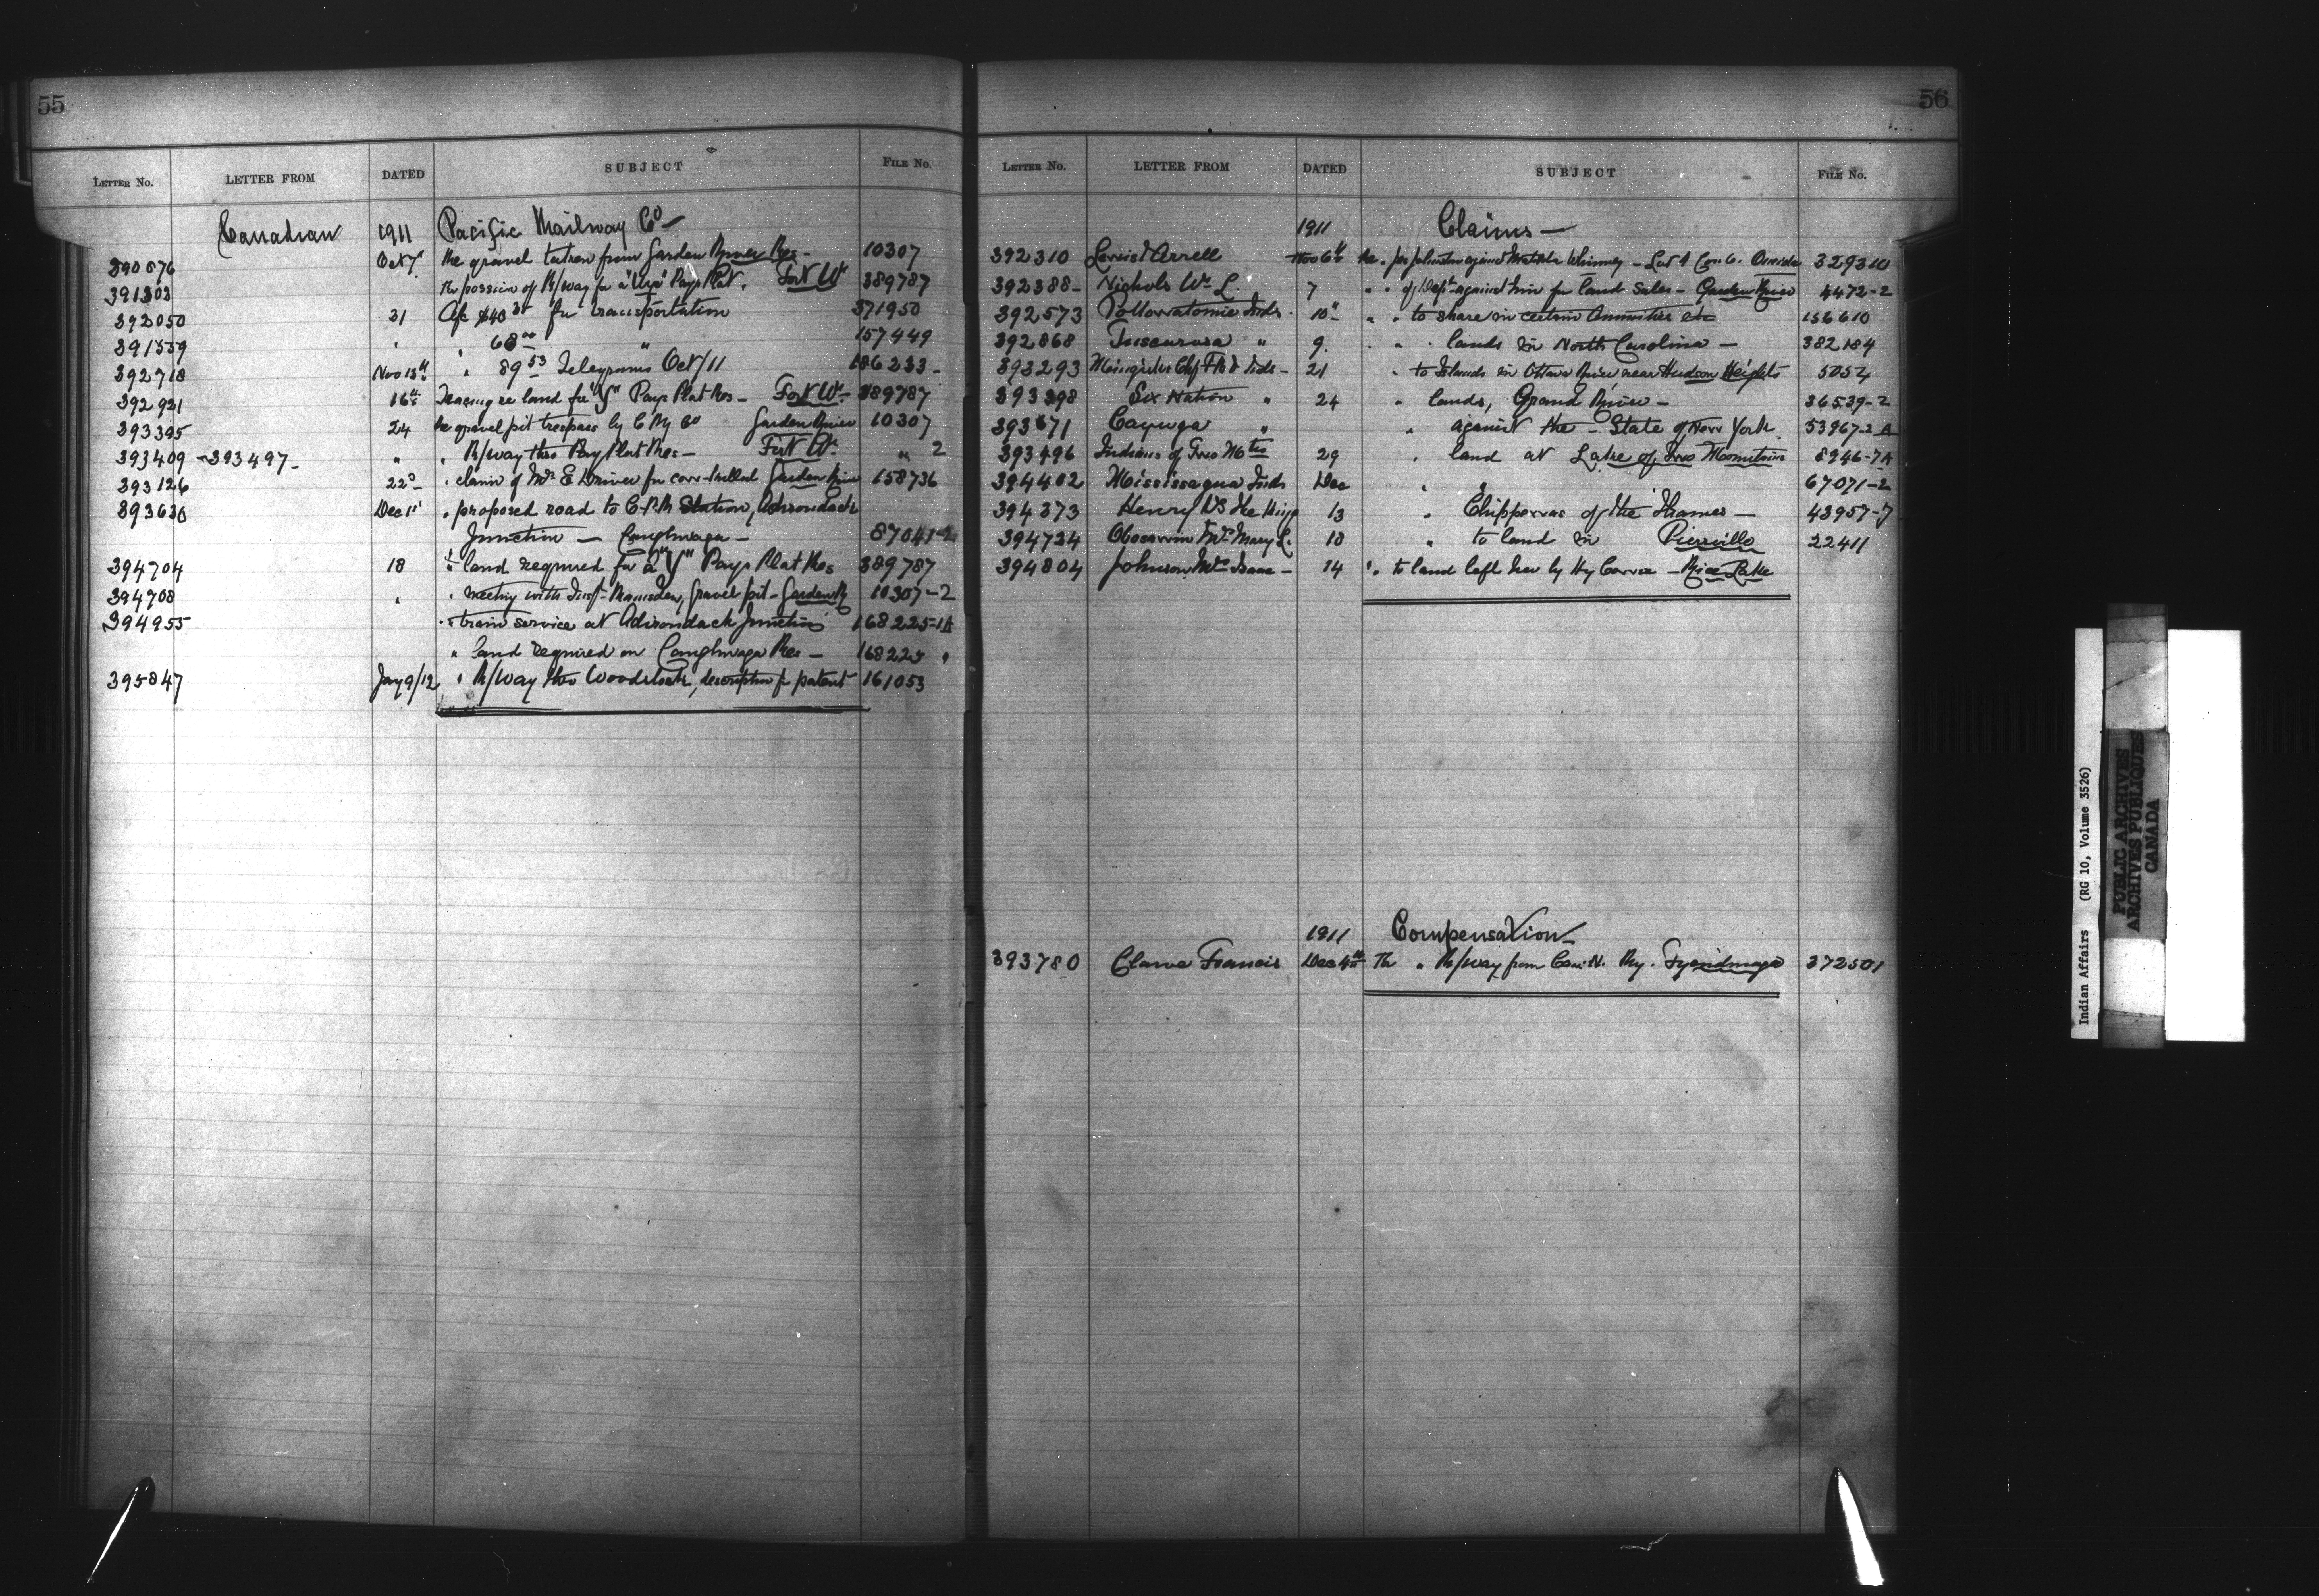 55
LETTER No. LETTER FROM DATED SUBJECT FILE No.
Canadian 1911 Pacific Railway Co—
390576 Oct 7 Re gravel taken from Garden River Res - 10307
391303 Re possession of R/way for a "Wye" Pays Plat. Fort Wm 389787
392050 31 A/c $40 35 for transportation 371950
391559 " " 68 00 " 157449
392718 Nov 13th " 89 53 Telegrams Oct/11 186233 -
392921 16th Tracing re land for "Y" Pays Plat Res - Fort Wm 389787
393395 24 Re gravel pit trespass by C Ry Co Garden River 10307
393409 - 393497 - " " R/way thro Pays Plat Res - Fort Wm " 2
393126 22d " claim of Mr E Driver for cow killed Garden River 158736
393630 Dec 1st " proposed road to C.P.R Station, Adirondack
Junction — Caughnawaga — 87041-2
394704 18 " land required for a "Y" Pays Plat Res 389787
394708 " " meeting with Insp- Ramsden, gravel pit - Garden R 10307-2
394955 " train service at Adirondack Junction 168225-1A
" land required on Caughnawaga Res — 168225 "
395847 Jany 9/12 " R/way thro Woodstock, description for patent 161053
56
LETTER No. LETTER FROM DATED SUBJECT FILE No.
1911 Claims —
392310 Nov 6th Re. Johnston against Matilda Whinney - Lot 1 Con 6. Oneida 329310
392388 - Nichols Wm L. 7 " " of Dept against him for land sales - Garden River 4472-2
392573 Pottowatomie Inds. 10th " " to share in certain Annuities etc 156610
392868 Tuscarora " 9. " " lands in North Carolina — 382184
393293 Chf Inds - 21 " to Islands in Ottawa River near Hudson Heights 5054
393398 Six Nation " 24 " lands, Grand River — 36539-2
393671 Cayuga " " against the - State of New York. 53967-2 A
393496 Indians of Two Mtns 29 " land at Lake of Two Mountains 8946-7A
394402 Mississagua Inds Dec " " 67071-2
394373 Henry Vs The King 13 " Chippewas of the Thames — 43957-7
394724 Obosawin Mrs Mary L. 18 " to land in Pierville 22411
394804 Johnson Mrs Isaac - 14 " to land left her by Hy Cowie - Rice Lake
1911 Compensation—
393780 Clause Francis Dec 4th Re " R/way from Can. N. Ry. Tyendinaga 372501
Indian Affairs (RG 10, Volume 3526)
PUBLIC ARCHIVES
ARCHIVES PUBLIQUES
CANADA